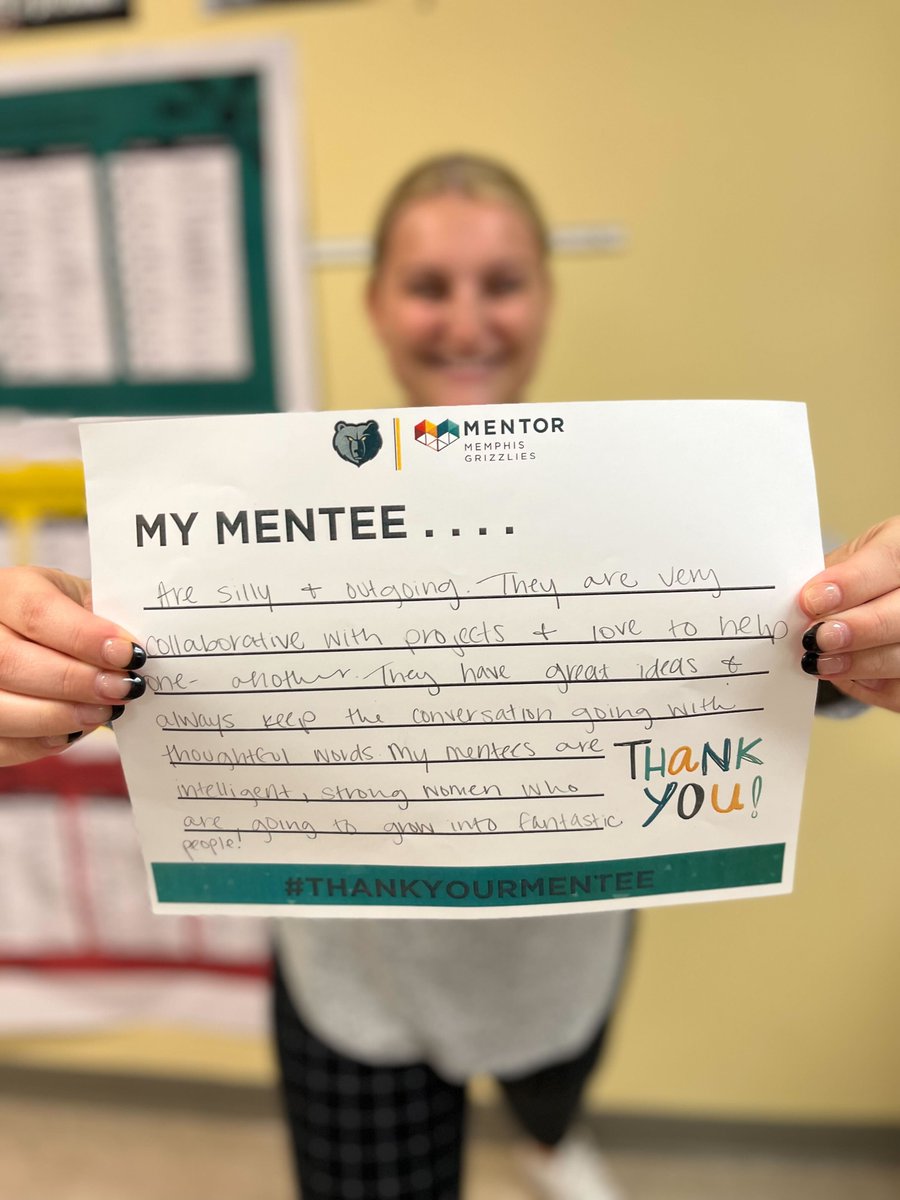 MENTOR
MEMPHIS
GRIZZLIES
MY MENTEE . . . .
Are silly + outgoing. They are very
collaborative with projects + love to help
one-another. They have great ideas +
always keep the conversation going with
thoughtful words. My mentees are
intelligent, strong women who
are going to grow into fantastic
people!
THANK
YOU!
#THANKYOURMENTEE